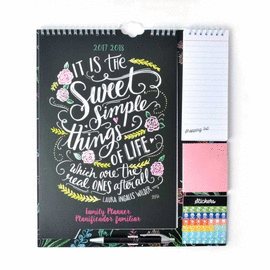 2017-2018
IT IS THE
Sweet
simple
things
OF LIFE
WHICH are the
real ONES after all
LAURA INGALLS WILDER
Family Planner
Planificador familiar
shopping list
stickers